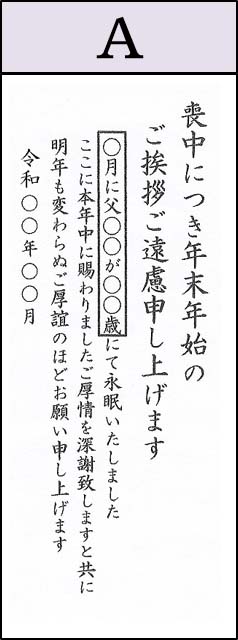 A
喪中につき年末年始の
ご挨拶ご遠慮申し上げます
〇月に父〇〇が〇〇歳にて永眠いたしました
ここに本年中に賜わりましたご厚情を深謝致しますと共に
明年も変わらぬご厚誼のほどお願い申し上げます
令和〇〇年〇〇月